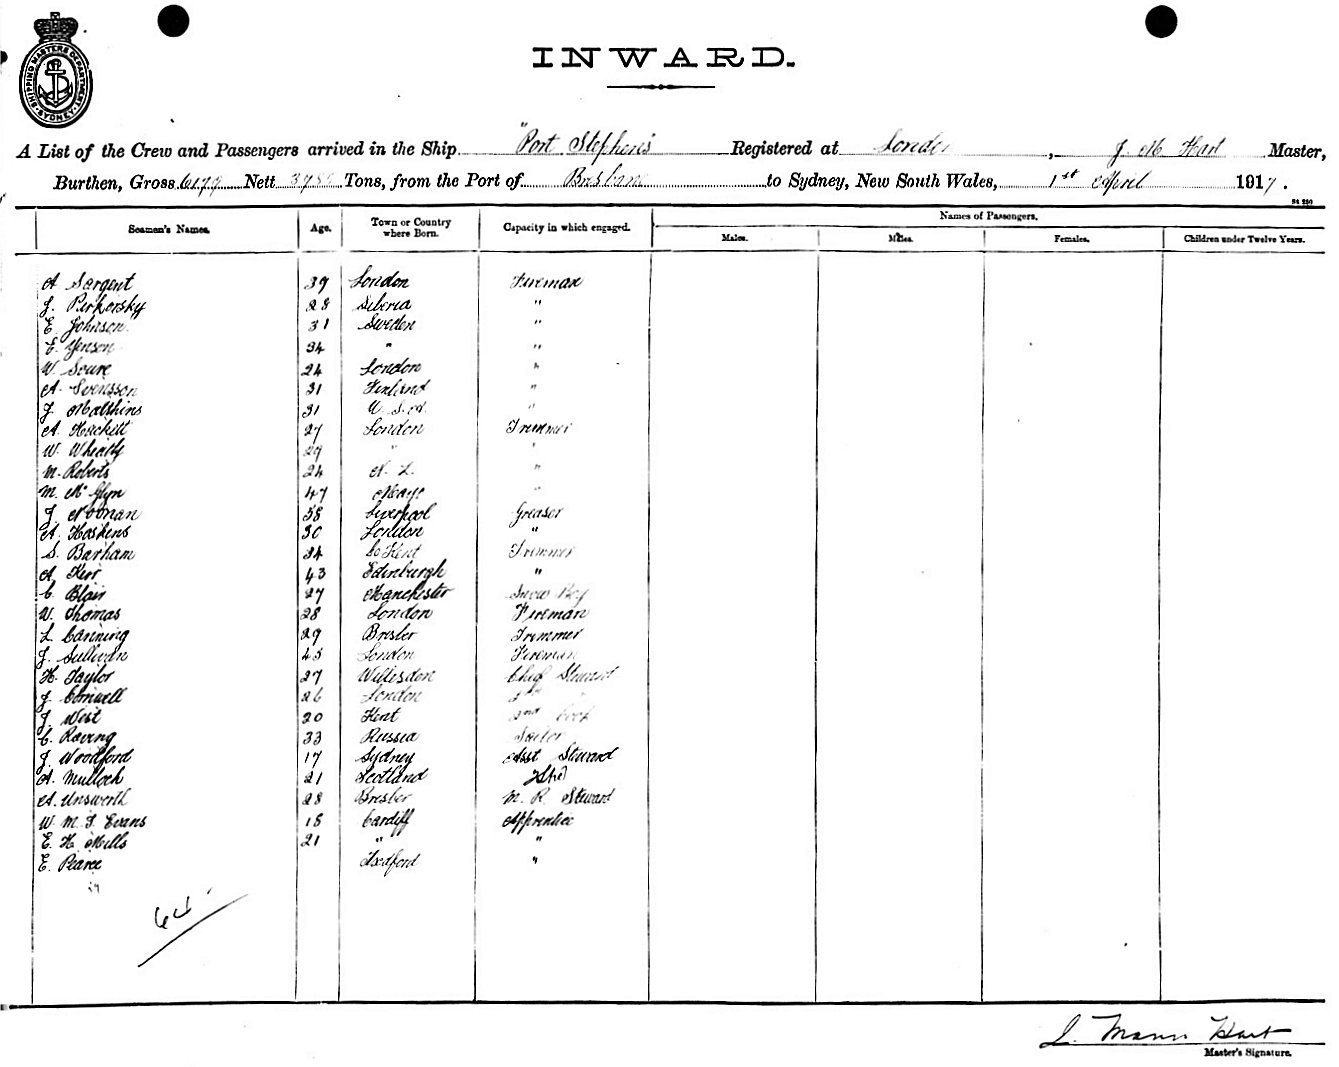 SHIPPING MASTERS DEPARTMENT SYDNEY
INWARD.
A List of the Crew and Passengers arrived in the Ship "Port Stephens" Registered at London, J. M Hart Master,
Burthen, Gross 6179 Nett Tons, from the Port of Brisbane to Sydney, New South Wales, 1st April 1917.
Names of Passengers.
Seamen's Names. Age. Town or Country where Born. Capacity in which engaged. Males. Males. Females. Children under Twelve Years.
A Sargent 39 London Fireman
J. 28 Siberia "
E. Johnson 31 Sweden "
E. Yenson 34 " "
W. 24 London "
A. Svensson 31 Finland "
J. 31 U.S.A. "
A. Hackett 27 London Trimmer
W. Wheatly 29 " "
M. Roberts 24 "
M. Mc Glyn 47 Mayo "
J. Noonan 58 Liverpool Greaser
A. Hoskins 30 London "
S. Barham 34 Co Kent Trimmer
A. Kerr 43 Edinburgh "
C. Blair 27 Manchester
W. Thomas 28 London Fireman
L. Canning 29 Trimmer
J. Sullivan 45 London Fireman
H. Taylor 27 Willesdon Chief Steward
J. 26 London
J. West 20 Kent 2nd Cook
C. 33 Russia Sailor
J. Woodford 17 Sydney Asst Steward
A. Mulloch 21 Scotland
A. Unsworth 28 M. R. Steward
W. M. J. Evans 18 Cardiff Apprentice
E. H. Mills 21 " "
E. Pearce "
J. Mann Hart
Master's Signature.